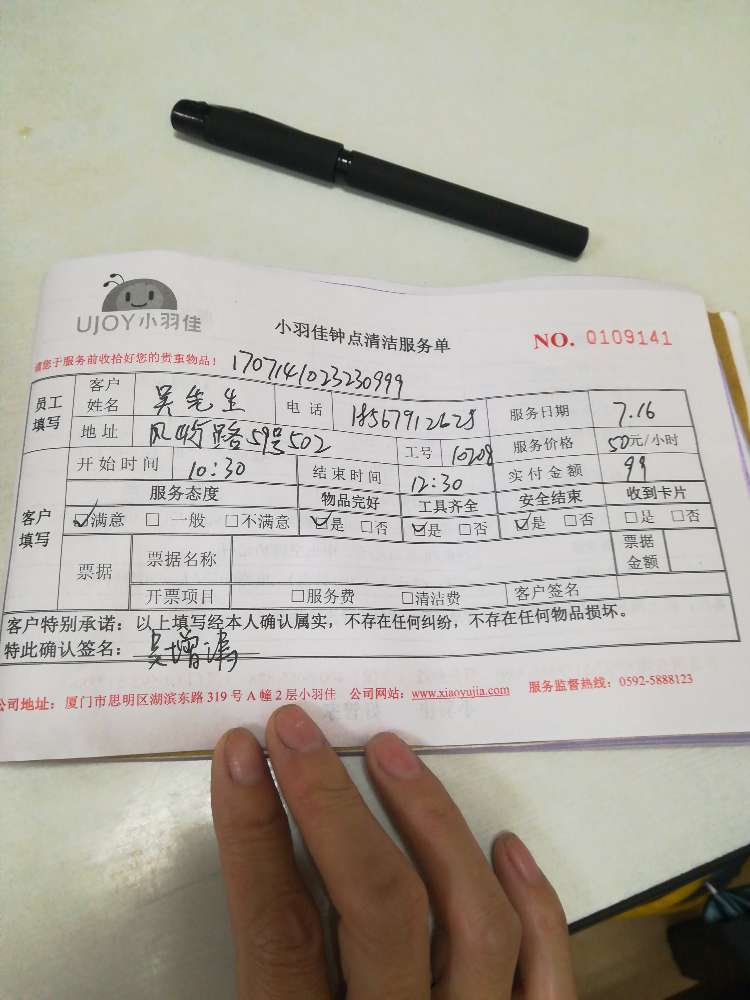 UJOY小羽佳
小羽佳钟点清洁服务单 NO. 0109141
请您于服务前收拾好您的贵重物品! 1707141023230999
员工填写 客户姓名 吴先生 电话 18567912628 服务日期 7.16
地址 59号502 工号 10208 服务价格 50元/小时
客户填写 开始时间 10:30 结束时间 12:30 实付金额 99
服务态度 物品完好 工具齐全 安全结束 收到卡片
☑满意 □一般 □不满意 ☑是 □否 ☑是 □否 ☑是 □否 □是 □否
票据 票据名称 票据金额
开票项目 □服务费 □清洁费 客户签名
客户特别承诺：以上填写经本人确认属实，不存在任何纠纷，不存在任何物品损坏。
特此确认签名： 吴增涛
公司地址：厦门市思明区湖滨东路319号A幢2层小羽佳 公司网站：www.xiaoyujia.com 服务监督热线：0592-5888123